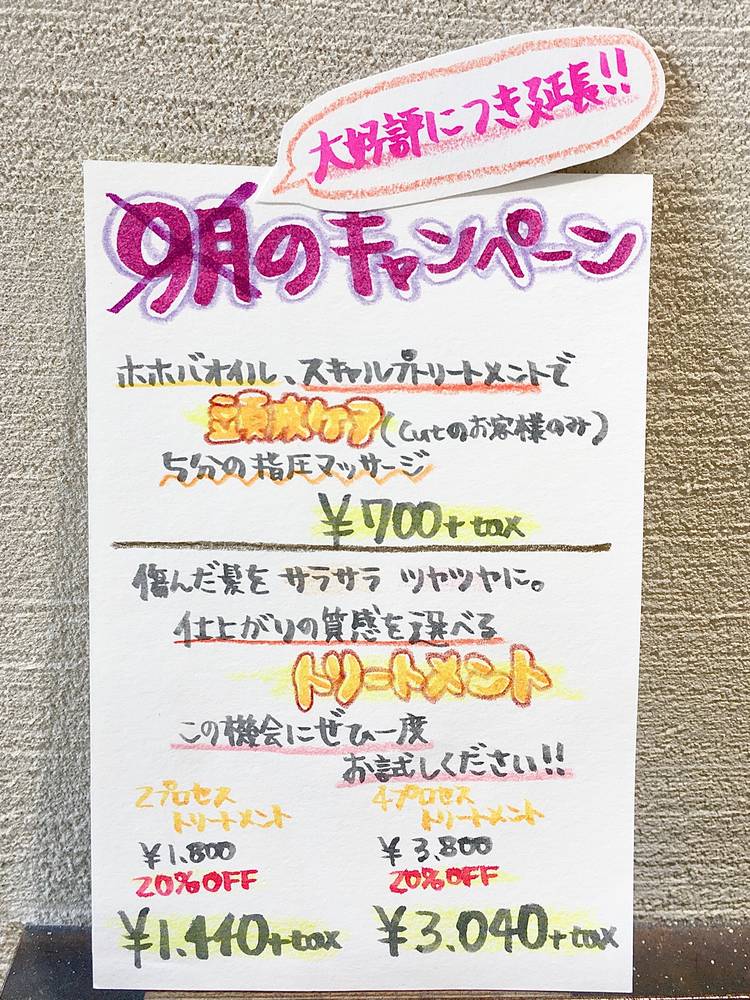 大好評につき延長!!
9月のキャンペーン
ホホバオイル、スキャルプトリートメントで
頭皮ケア(Cutのお客様のみ)
5分の指圧マッサージ
¥700+tax
傷んだ髪をサラサラ ツヤツヤに。
仕上がりの質感を選べる
トリートメント
この機会にぜひ一度
お試しください!!
2プロセス
トリートメント
¥1.800
20%OFF
¥1.440+tax
4プロセス
トリートメント
¥3.800
20%OFF
¥3.040+tax